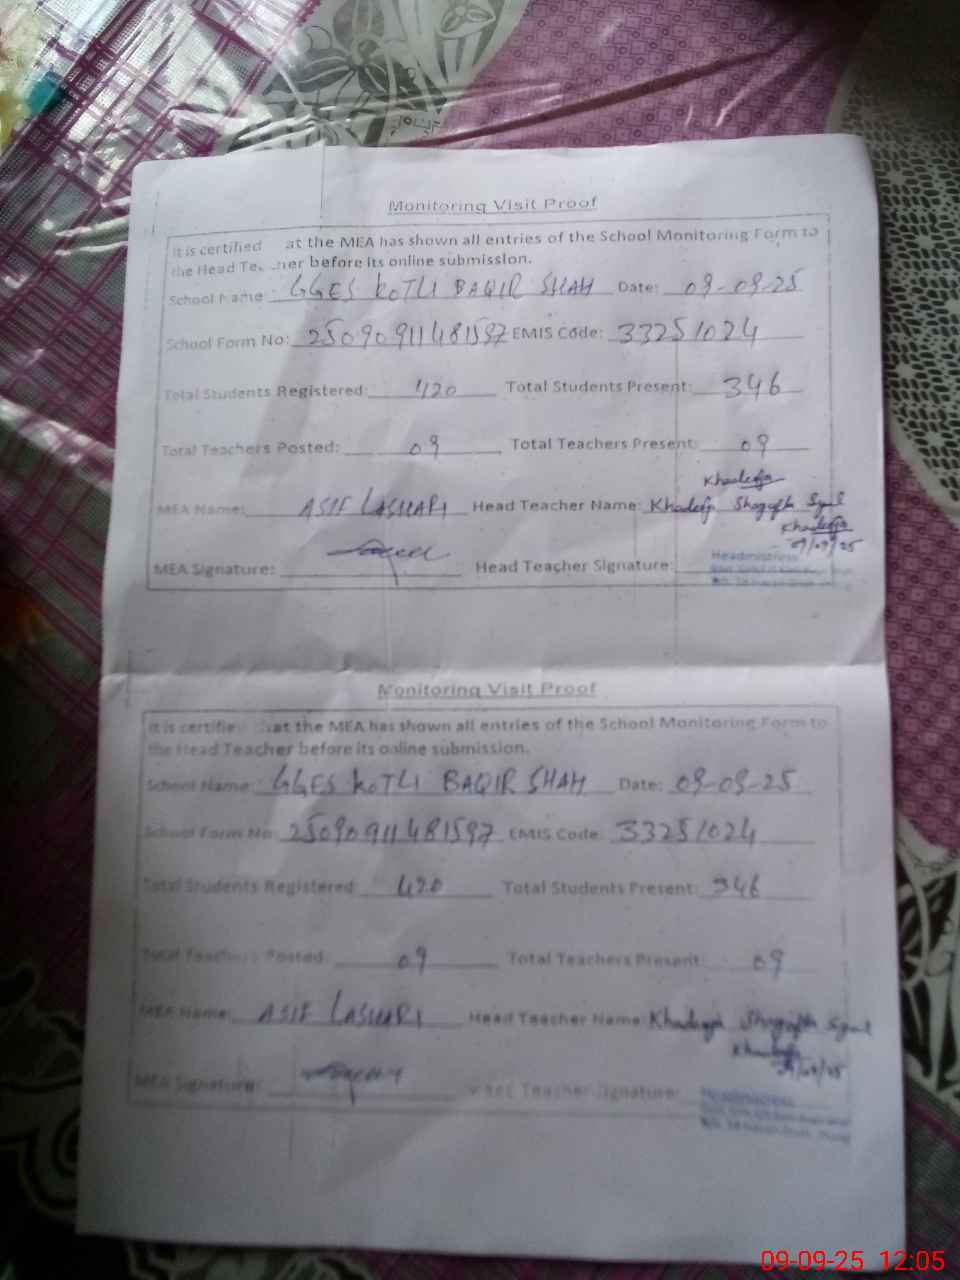 Monitoring Visit Proof
It is certified at the MEA has shown all entries of the School Monitoring Form to
the Head Teacher before its online submission.
School Name: GGES KOTLI BAQIR SHAH Date: 09-09-25
School Form No: 25090911481597 EMIS Code: 33251024
Total Students Registered: 420 Total Students Present: 346
Total Teachers Posted: 09 Total Teachers Present: 09
Khadeeja
MEA Name: ASIF LASHARI Head Teacher Name: Khadeeja Shagufta
Khadeeja
09/09/25
MEA Signature: Head Teacher Signature:
Headmistress
Monitoring Visit Proof
It is certified that the MEA has shown all entries of the School Monitoring Form to
the Head Teacher before its online submission.
School Name: GGES KOTLI BAQIR SHAH Date: 09-09-25
School Form No: 25090911481597 EMIS Code: 33251024
Total Students Registered: 420 Total Students Present: 346
Total Teachers Posted: 09 Total Teachers Present: 09
MEA Name: ASIF LASHARI Head Teacher Name: Khadeeja Shagufta
Khadeeja
09/09/25
MEA Signature: Head Teacher Signature:
Headmistress
09-09-25 12:05